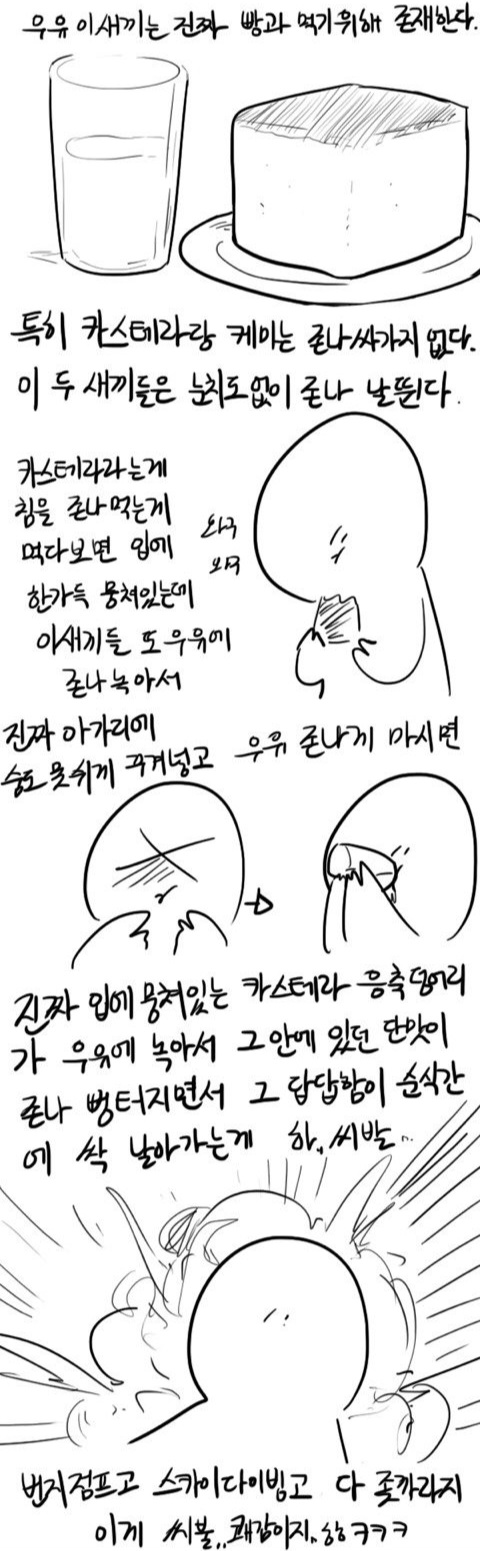 우유 이새끼는 진짜 빵과 먹기위해 존재한다.
특히 카스테라랑 케미는 존나싸가지없다.
이 두 새끼들은 눈치도없이 존나 날뛴다.
카스테라라는게
침을 존나먹는게
먹다보면 입에
한가득 뭉쳐있는데
이새끼들 또 우유에
존나 녹아서
와구
와구
진짜 아가리에
숨도 못쉬게 꾸겨넣고
우유 존나게 마시면
진짜 입에 뭉쳐있는 카스테라 응축덩어리
가 우유에 녹아서 그안에 있던 단맛이
존나 뻥터지면서 그 답답함이 순식간
에 싹 날아가는게 하,,씨발..
번지점프고 스카이다이빙고 다 좆까라지
이게 씨불,,쾌감이지..하ㅋㅋㅋ